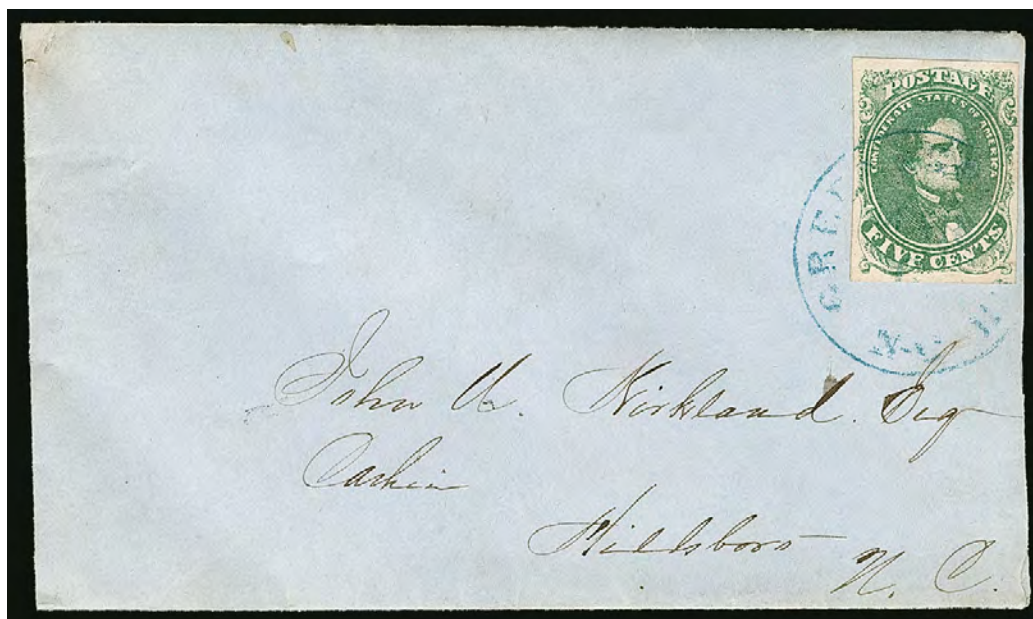 POSTAGE
CONFEDERATE STATES OF AMERICA
FIVE CENTS
GRE
N.C.
John U. Kirkland. Esq
Cashier
Hillsboro
N. C.